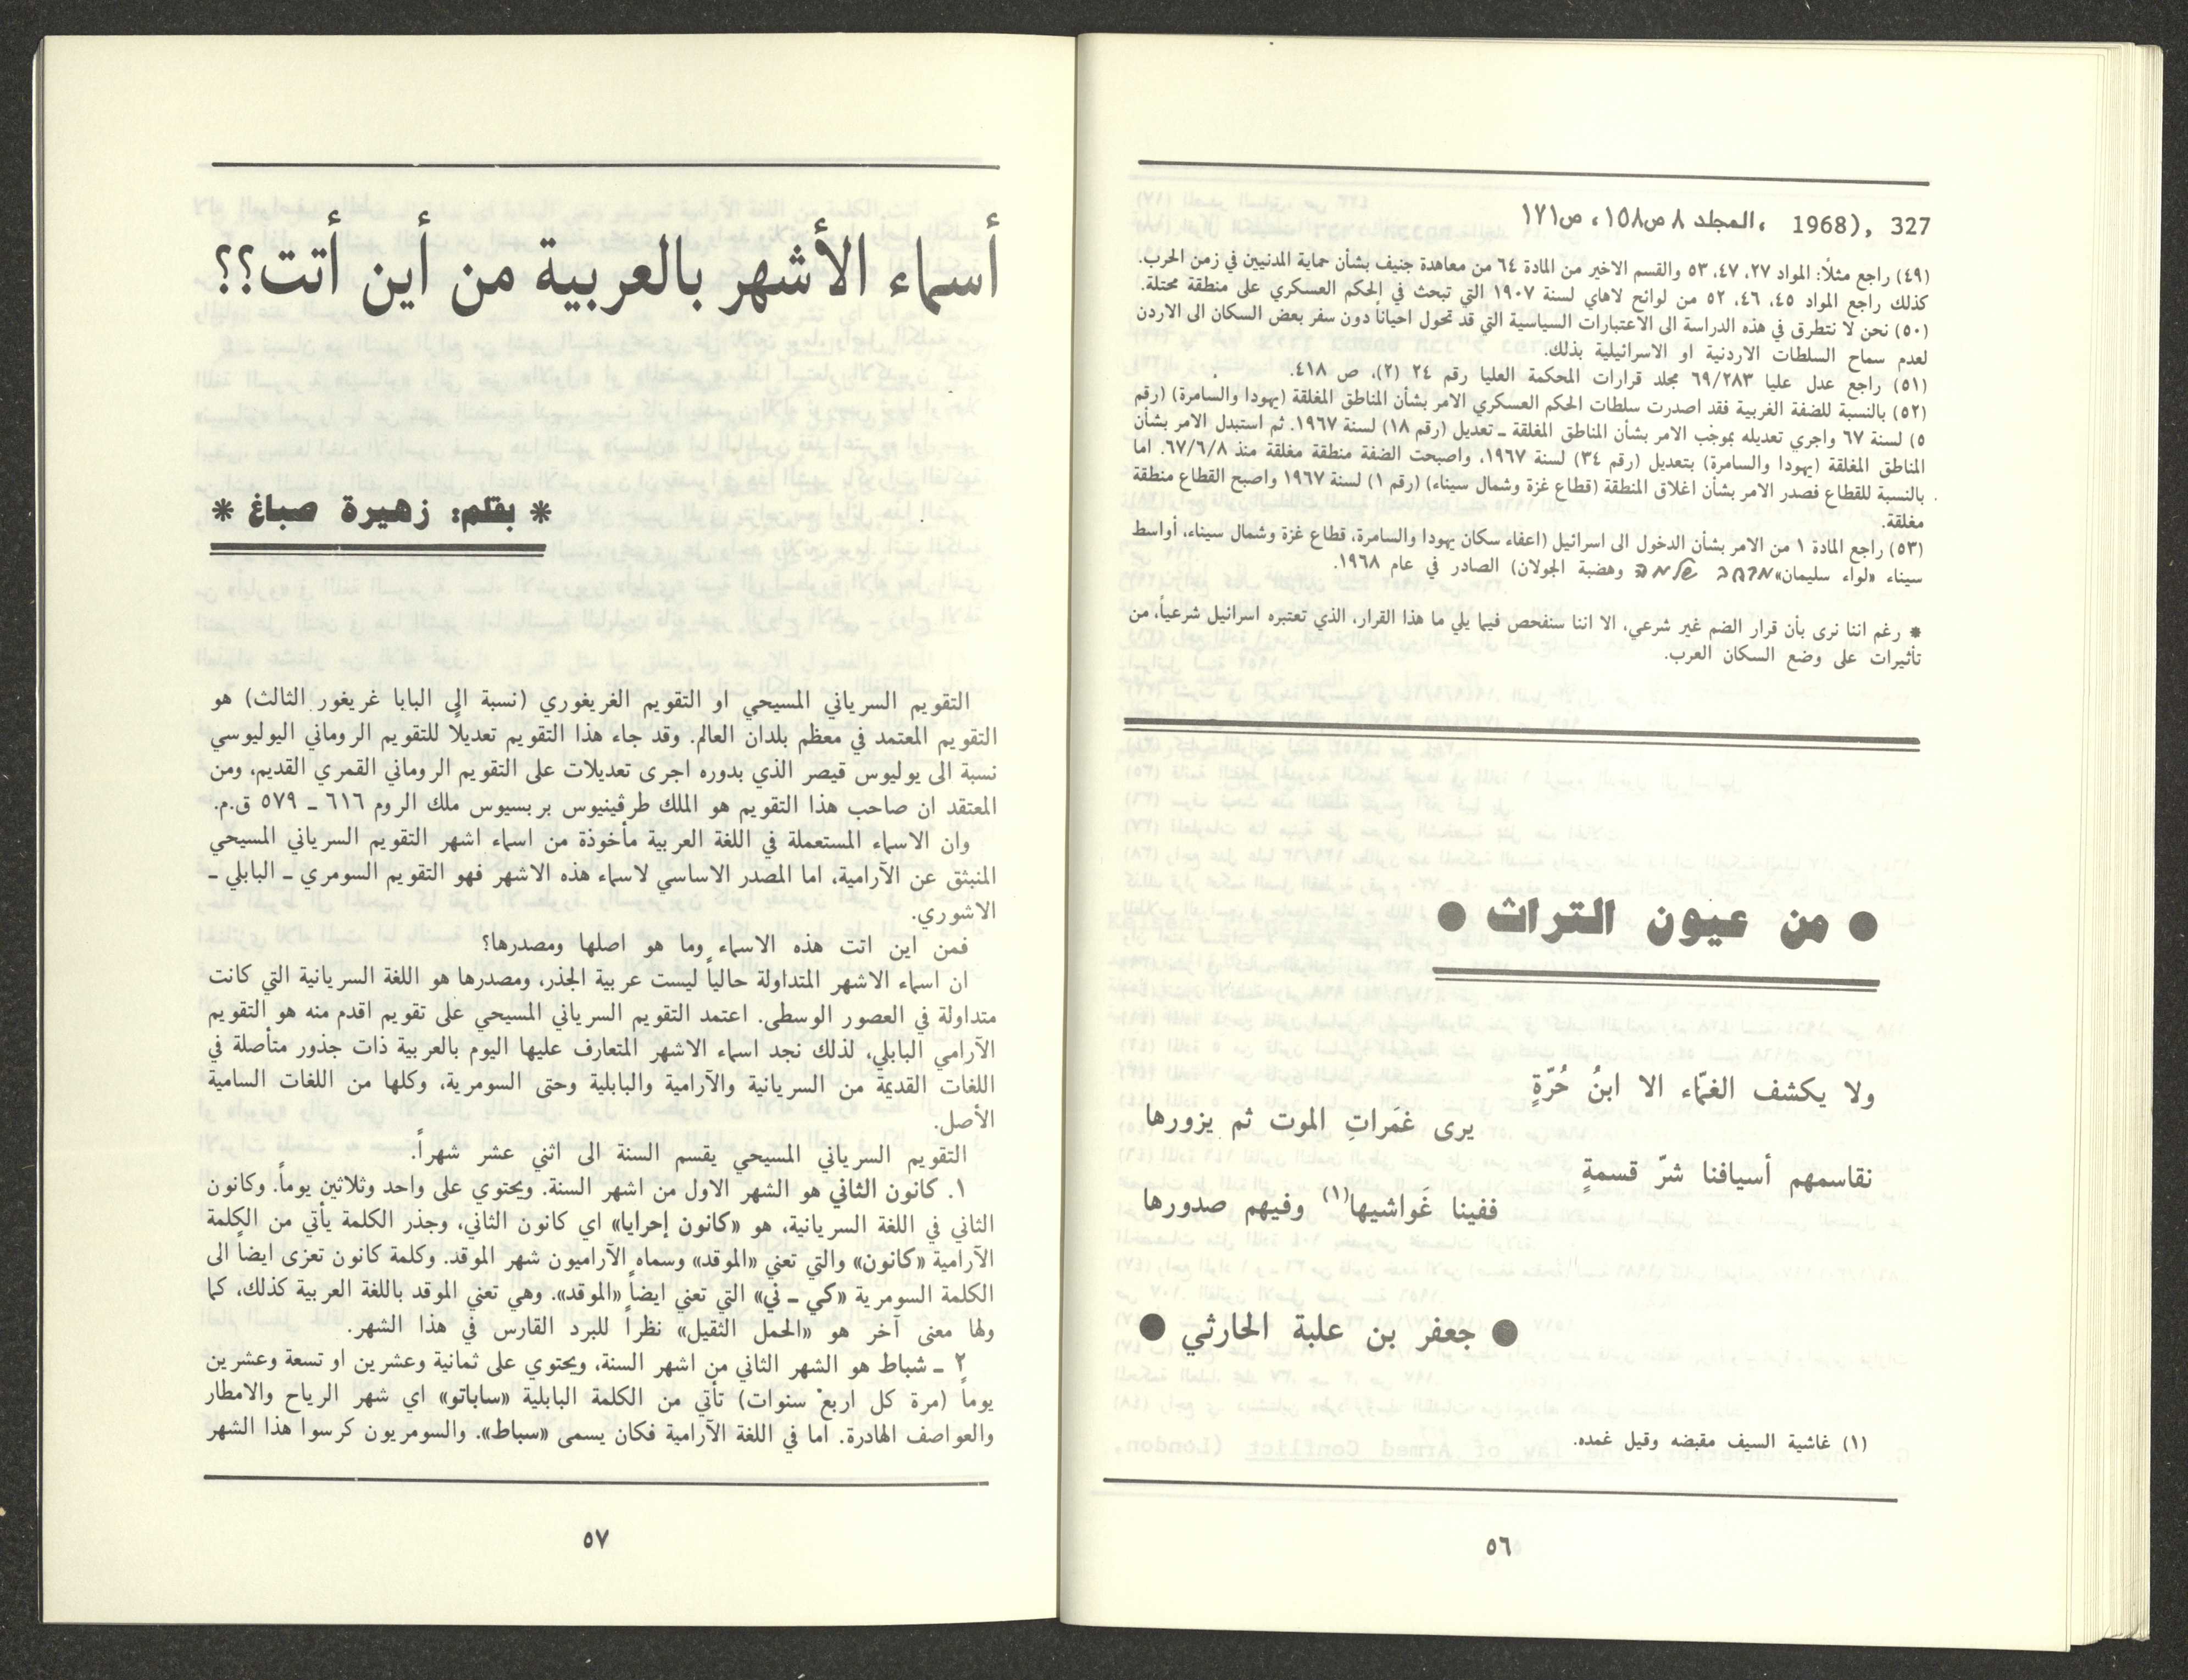 327 ,(1968 ، المجلد ٨ ص١٥٨، ص١٧١
(٤٩) راجع مثلاً: المواد ٢٧، ٤٧، ٥٣ والقسم الاخير من المادة ٦٤ من معاهدة جنيف بشأن حماية المدنيين في زمن الحرب.
كذلك راجع المواد ٤٥، ٤٦، ٥٢ من لوائح لاهاي لسنة ١٩٠٧ التي تبحث في الحكم العسكري على منطقة محتلة.
(٥٠) نحن لا نتطرق في هذه الدراسة الى الاعتبارات السياسية التي قد تحول احياناً دون سفر بعض السكان الى الاردن
لعدم سماح السلطات الاردنية او الاسرائيلية بذلك.
(٥١) راجع عدل عليا ٦٩/٢٨٣ مجلد قرارات المحكمة العليا رقم ٢٤ (٢)، ص ٤١٨.
(٥٢) بالنسبة للضفة الغربية فقد اصدرت سلطات الحكم العسكري الامر بشأن المناطق المغلقة (يهودا والسامرة) (رقم
٥) لسنة ٦٧ واجري تعديله بموجب الامر بشأن المناطق المغلقة ـ تعديل (رقم ١٨) لسنة ١٩٦٧. ثم استبدل الامر بشأن
المناطق المغلقة (يهودا والسامرة) بتعديل (رقم ٣٤) لسنة ١٩٦٧، واصبحت الضفة منطقة مغلقة منذ ٦٧/٦/٨. اما
بالنسبة للقطاع فصدر الامر بشأن اغلاق المنطقة (قطاع غزة وشمال سيناء) (رقم ١) لسنة ١٩٦٧ واصبح القطاع منطقة
مغلقة.
(٥٣) راجع المادة ١ من الامر بشأن الدخول الى اسرائيل (اعفاء سكان يهودا والسامرة، قطاع غزة وشمال سيناء، أواسط
سيناء «لواء سليمان» מרחב שלמה وهضبة الجولان) الصادر في عام ١٩٦٨.
* رغم اننا نرى بأن قرار الضم غير شرعي، الا اننا سنفحص فيما يلي ما هذا القرار، الذي تعتبره اسرائيل شرعياً، من
تأثيرات على وضع السكان العرب.
● من عيون التراث ●
ولا يكشف الغمّاء الا ابنُ حُرّةٍ
يرى غمَراتِ الموت ثم يزورها
نقاسمهم أسيافنا شرّ قسمةٍ
ففينا غَواشيها(١) وفيهم صدورها
● جعفر بن علبة الحارثي ●
(١) غاشية السيف مقبضه وقيل غمده.
٥٦
أسماء الأشهر بالعربية من أين أتت؟؟
* بقلم: زهيرة صباغ *
التقويم السرياني المسيحي او التقويم الغريغوري (نسبة الى البابا غريغور الثالث) هو
التقويم المعتمد في معظم بلدان العالم. وقد جاء هذا التقويم تعديلاً للتقويم الروماني اليوليوسي
نسبة الى يوليوس قيصر الذي بدوره اجرى تعديلات على التقويم الروماني القمري القديم، ومن
المعتقد ان صاحب هذا التقويم هو الملك طرڤينيوس بربسيوس ملك الروم ٦١٦ ـ ٥٧٩ ق.م.
وان الاسماء المستعملة في اللغة العربية مأخوذة من اسماء اشهر التقويم السرياني المسيحي
المنبثق عن الآرامية، اما المصدر الاساسي لاسماء هذه الاشهر فهو التقويم السومري ـ البابلي ـ
الاشوري.
فمن اين اتت هذه الاسماء وما هو اصلها ومصدرها؟
ان اسماء الاشهر المتداولة حالياً ليست عربية الجذر، ومصدرها هو اللغة السريانية التي كانت
متداولة في العصور الوسطى. اعتمد التقويم السرياني المسيحي على تقويم اقدم منه هو التقويم
الآرامي البابلي، لذلك نجد اسماء الاشهر المتعارف عليها اليوم بالعربية ذات جذور متأصلة في
اللغات القديمة من السريانية والآرامية والبابلية وحتى السومرية، وكلها من اللغات السامية
الأصل.
التقويم السرياني المسيحي يقسم السنة الى اثني عشر شهراً.
١. كانون الثاني هو الشهر الاول من اشهر السنة. ويحتوي على واحد وثلاثين يوماً. وكانون
الثاني في اللغة السريانية، هو «كانون إحرايا» اي كانون الثاني، وجذر الكلمة يأتي من الكلمة
الآرامية «كانون» والتي تعني «الموقد» وسماه الآراميون شهر الموقد. وكلمة كانون تعزى ايضاً الى
الكلمة السومرية «كي ـ ني» التي تعني ايضاً «الموقد». وهي تعني الموقد باللغة العربية كذلك، كما
ولها معنى آخر هو «الحمل الثقيل» نظراً للبرد القارس في هذا الشهر.
٢ ـ شباط هو الشهر الثاني من اشهر السنة، ويحتوي على ثمانية وعشرين او تسعة وعشرين
يوماً (مرة كل اربع سنوات) تأتي من الكلمة البابلية «ساباتو» اي شهر الرياح والامطار
والعواصف الهادرة. اما في اللغة الآرامية فكان يسمى «سباط». والسومريون كرسوا هذا الشهر
٥٧